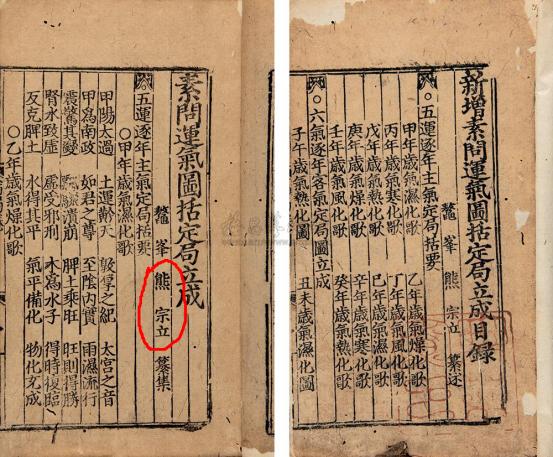 新增素問運氣圖括定局立成目録
鰲峯 熊 宗立 纂述
○五運逐年主氣定局括要
甲年歲氣濕化歌 乙年歲氣燥化歌
丙年歲氣寒化歌 丁年歲氣風化歌
戊年歲氣熱化歌 巳年歲氣濕化歌
庚年歲氣燥化歌 辛年歲氣寒化歌
壬年歲氣風化歌 癸年歲氣熱化歌
○六氣逐年客氣定局圖立成
子午歲氣熱化圖 丑未歲氣濕化圖
素問運氣圖括定局立成
鰲峯 熊 宗立 纂集
○五運逐年主氣定局括要
○甲年歲氣濕化歌
甲陽太過 土運齡天 之紀 太宮之音
甲爲南政 如君之尊 至陰内實 雨濕流行
震驚其變 潰崩 脾土乘旺 旺則得勝
腎水致虛 虛受邪刑 木爲水子 得時復臨
反克脾土 水得其平 氣平備化 物化充成
○乙年歲氣燥化歌